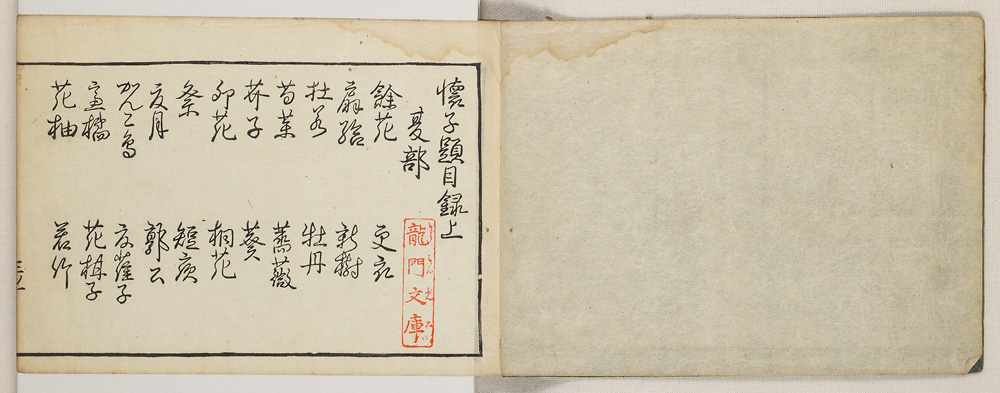 懐子題目録上
夏部
餘花 更衣
新樹
杜若 牡丹
芍薬 薔薇
芥子 葵
卯花 桐花
短夜
夏月 郭公
かんこ鳥
盧橘 花梔子
花柚 若竹
龍門文庫